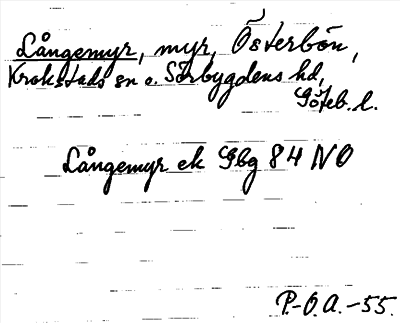 Långemyr, myr, Österbön,
Krokstads sn o. Sörbygdens hd,
Göteb. l.
Långemyr ek Gbg 84 NO
P.-O.A. -55.